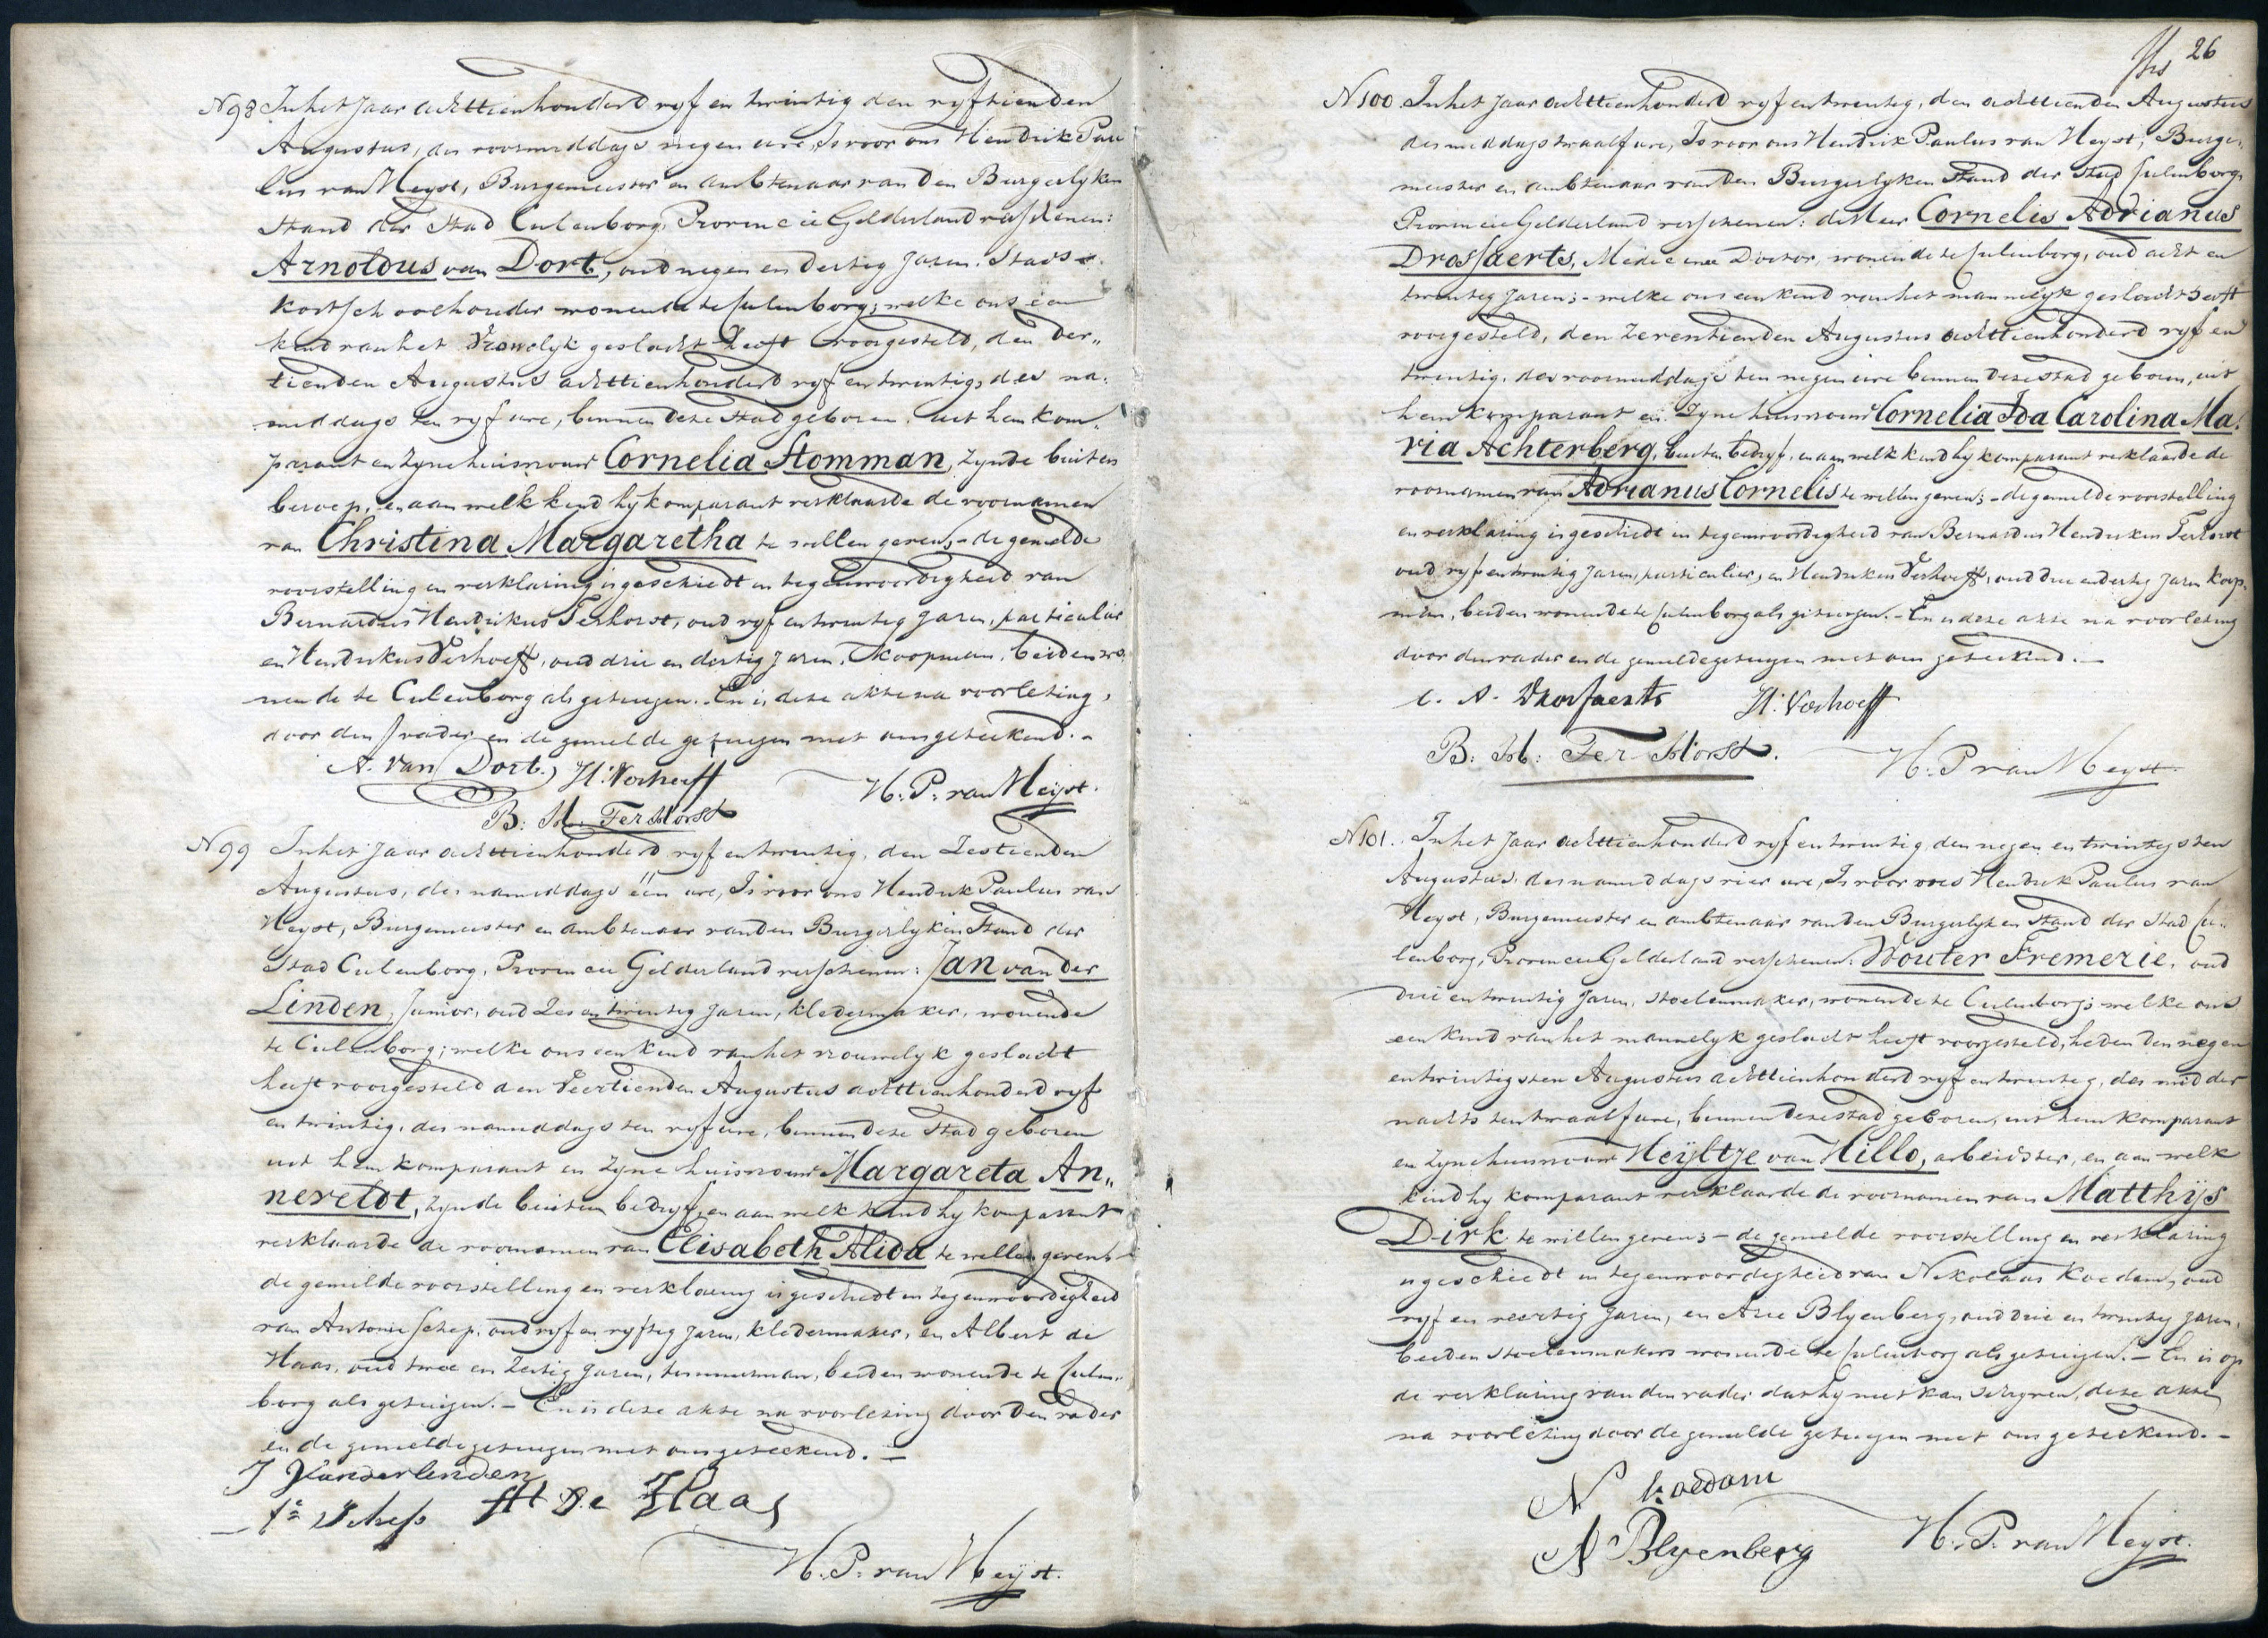 N98 In het Jaar achttienhonderd vyf en twintig den vyftienden
Augustus, des voormiddags negen ure, Is voor ons Hendrik Pau
lus van Heyst, Burgemeester en ambtenaar van den Burgerlyken
Stand der Stad Culenborg, Provincie Gelderland verschenen:
Arnoldus van Dort, oud negen en dertig Jaren, Stads
kostschoolhouder wonende te Culenborg; welke ons een
kind van het Vrouwelyk geslacht heeft voorgesteld, den der„
tienden Augustus achttienhonderd vyf en twintig, des na„
middags ten vyf ure, binnen deze Stad geboren, uit hem kom„
parant en zyne huisvrouw Cornelia Stomman, zynde buiten
beroep, en aan welk kind hy komparant verklaarde de voornamen
van Christina Margaretha te willen geven;- de gemelde
voorstelling en verklaring is geschiedt in tegenwoordigheid van
Bernardus Hendrikus Terhorst, oud vyf en twintig Jaren, particulier
en Hendrikus Verhoeff, oud drie en dertig Jaren, Koopman, beiden wo„
nende te Culenborg als getuigen. En is deze akte na voorlezing,
door den vader en de gemelde getuigen met ons geteekend.-
A. van Dort. H: Verhoeff
H: P: van Heyst.
B: H: Ter Horst
N99 In het Jaar achttienhonderd vyf en twintig, den Zestienden
Augustus, des namiddags één ure, Is voor ons Hendrik Paulus van
Heyst, Burgemeester en ambtenaar van den Burgerlyken Stand der
Stad Culenborg, Provincie Gelderland verschenen: Jan van der
Linden, Junior, oud Zes en twintig Jaren, kledermaker, wonende
te Culenborg; welke ons een kind van het vrouwelyk geslacht
heeft voorgesteld den Veertienden Augustus achttienhonderd vyf
en twintig, des namiddags ten vyf ure, binnen deze Stad geboren
uit hem komparant en Zyne huisvrouw Margareta An„
neveldt, zynde buiten bedryf, en aan welk kind hy komparant
verklaarde de voornamen van Elisabeth Alida te willen geven;-
de gemelde voorstelling en verklaring is geschiedt in tegenwoordigheid
van Antonie Schep, oud vyf en vyftig Jaren, kledermaker, en Albert de
Haas, oud twee en Zestig Jaren, timmerman, beiden wonende te Culen„
borg als getuigen.- En is deze akte na voorlezing door den vader
en de gemelde getuigen met ons geteekend.-
J Vanderlinden
Schep de Haas
H. P. van Heyst.
26
N100 In het Jaar achttienhonderd vyf en twintig, den achttienden Augustus
des middags twaalf ure, Is voor ons Hendrik Paulus van Heyst, Burge„
meester en ambtenaar van den Burgerlyken Stand der Stad Culenborg,
Provincie Gelderland verschenen: de Heer Cornelis Adrianus
Drossaerts, Medicinae Doctor, wonende te Culenborg, oud acht en
twintig Jaren;- welke ons een kind van het mannelyk geslacht heeft
voorgesteld, den Zeventienden Augustus achttienhonderd vyf en
twintig, des voormiddags ten negen ure binnen deze stad geboren, uit
hem komparant en Zyne huisvrouw Cornelia Ida Carolina Ma„
ria Achterberg, buiten bedryf, en aan welk kind hy komparant verklaarde de
voornamen van Adrianus Cornelis te willen geven;- de gemelde voorstelling
en verklaring is geschiedt in tegenwoordigheid van Bernardus Hendrikus Terhorst
oud vyf en twintig Jaren, particulier, en Hendrikus Verhoeff, oud drie en dertig Jaren Koop„
man, beiden wonende te Culenborg als getuigen.- En is deze akte na voorlezing
door den vader en de gemelde getuigen met ons geteekend.-
C. A. Drossaerts H: Verhoeff
B: H: Ter Horst. H. P van Heyst.
N101. In het Jaar achttienhonderd vyf en twintig, den negen en twintigsten
Augustus, des namiddags vier ure, Is voor ons Hendrik Paulus van
Heyst, Burgemeester en ambtenaar van den Burgerlyken Stand der Stad Cu„
lenborg, Provincie Gelderland verschenen: Wouter Fremerie, oud
drie en twintig Jaren, stoelenmaker, wonende te Culenborg; welke ons
een kind van het mannelyk geslacht heeft voorgesteld, heden den negen
en twintigsten Augustus achttienhonderd vyf en twintig, des midder„
nachts ten twaalf ure, binnen deze stad geboren, uit hem komparant
en Zyne huisvrouw Heyltje van Hillo, arbeidster, en aan welk
kind hy komparant verklaarde de voornamen van Matthijs
Dirk te willen geven;- de gemelde voorstelling en verklaring
is geschiedt in tegenwoordigheid van Nikolaas Koedam, oud
vyf en veertig Jaren, en Arie Blyenberg, oud drie en twintig Jaren,
beiden stoelenmakers wonende te Culenborg als getuigen.- En is op
de verklaring van den vader dat hy niet kan schryven, deze akte
na voorlezing door de gemelde getuigen met ons geteekend.-
N koedam
A Blyenberg H. P. van Heyst.